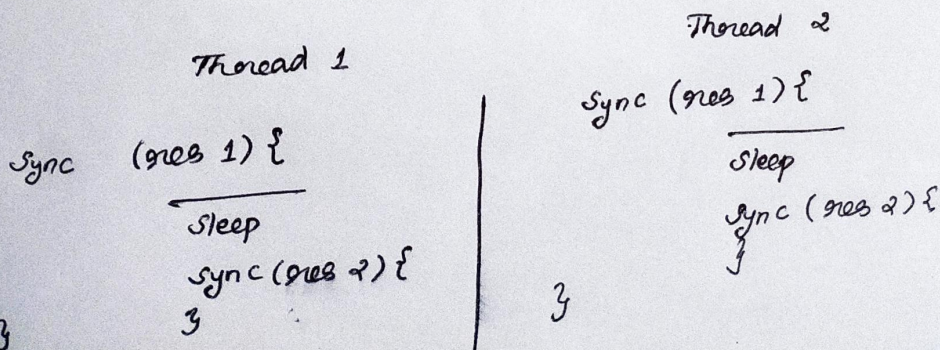 Thread 1
Sync (res 1) {
Sleep
Sync (res 2) {
}
}
Thread 2
Sync (res 1) {
Sleep
Sync (res 2) {
}
}